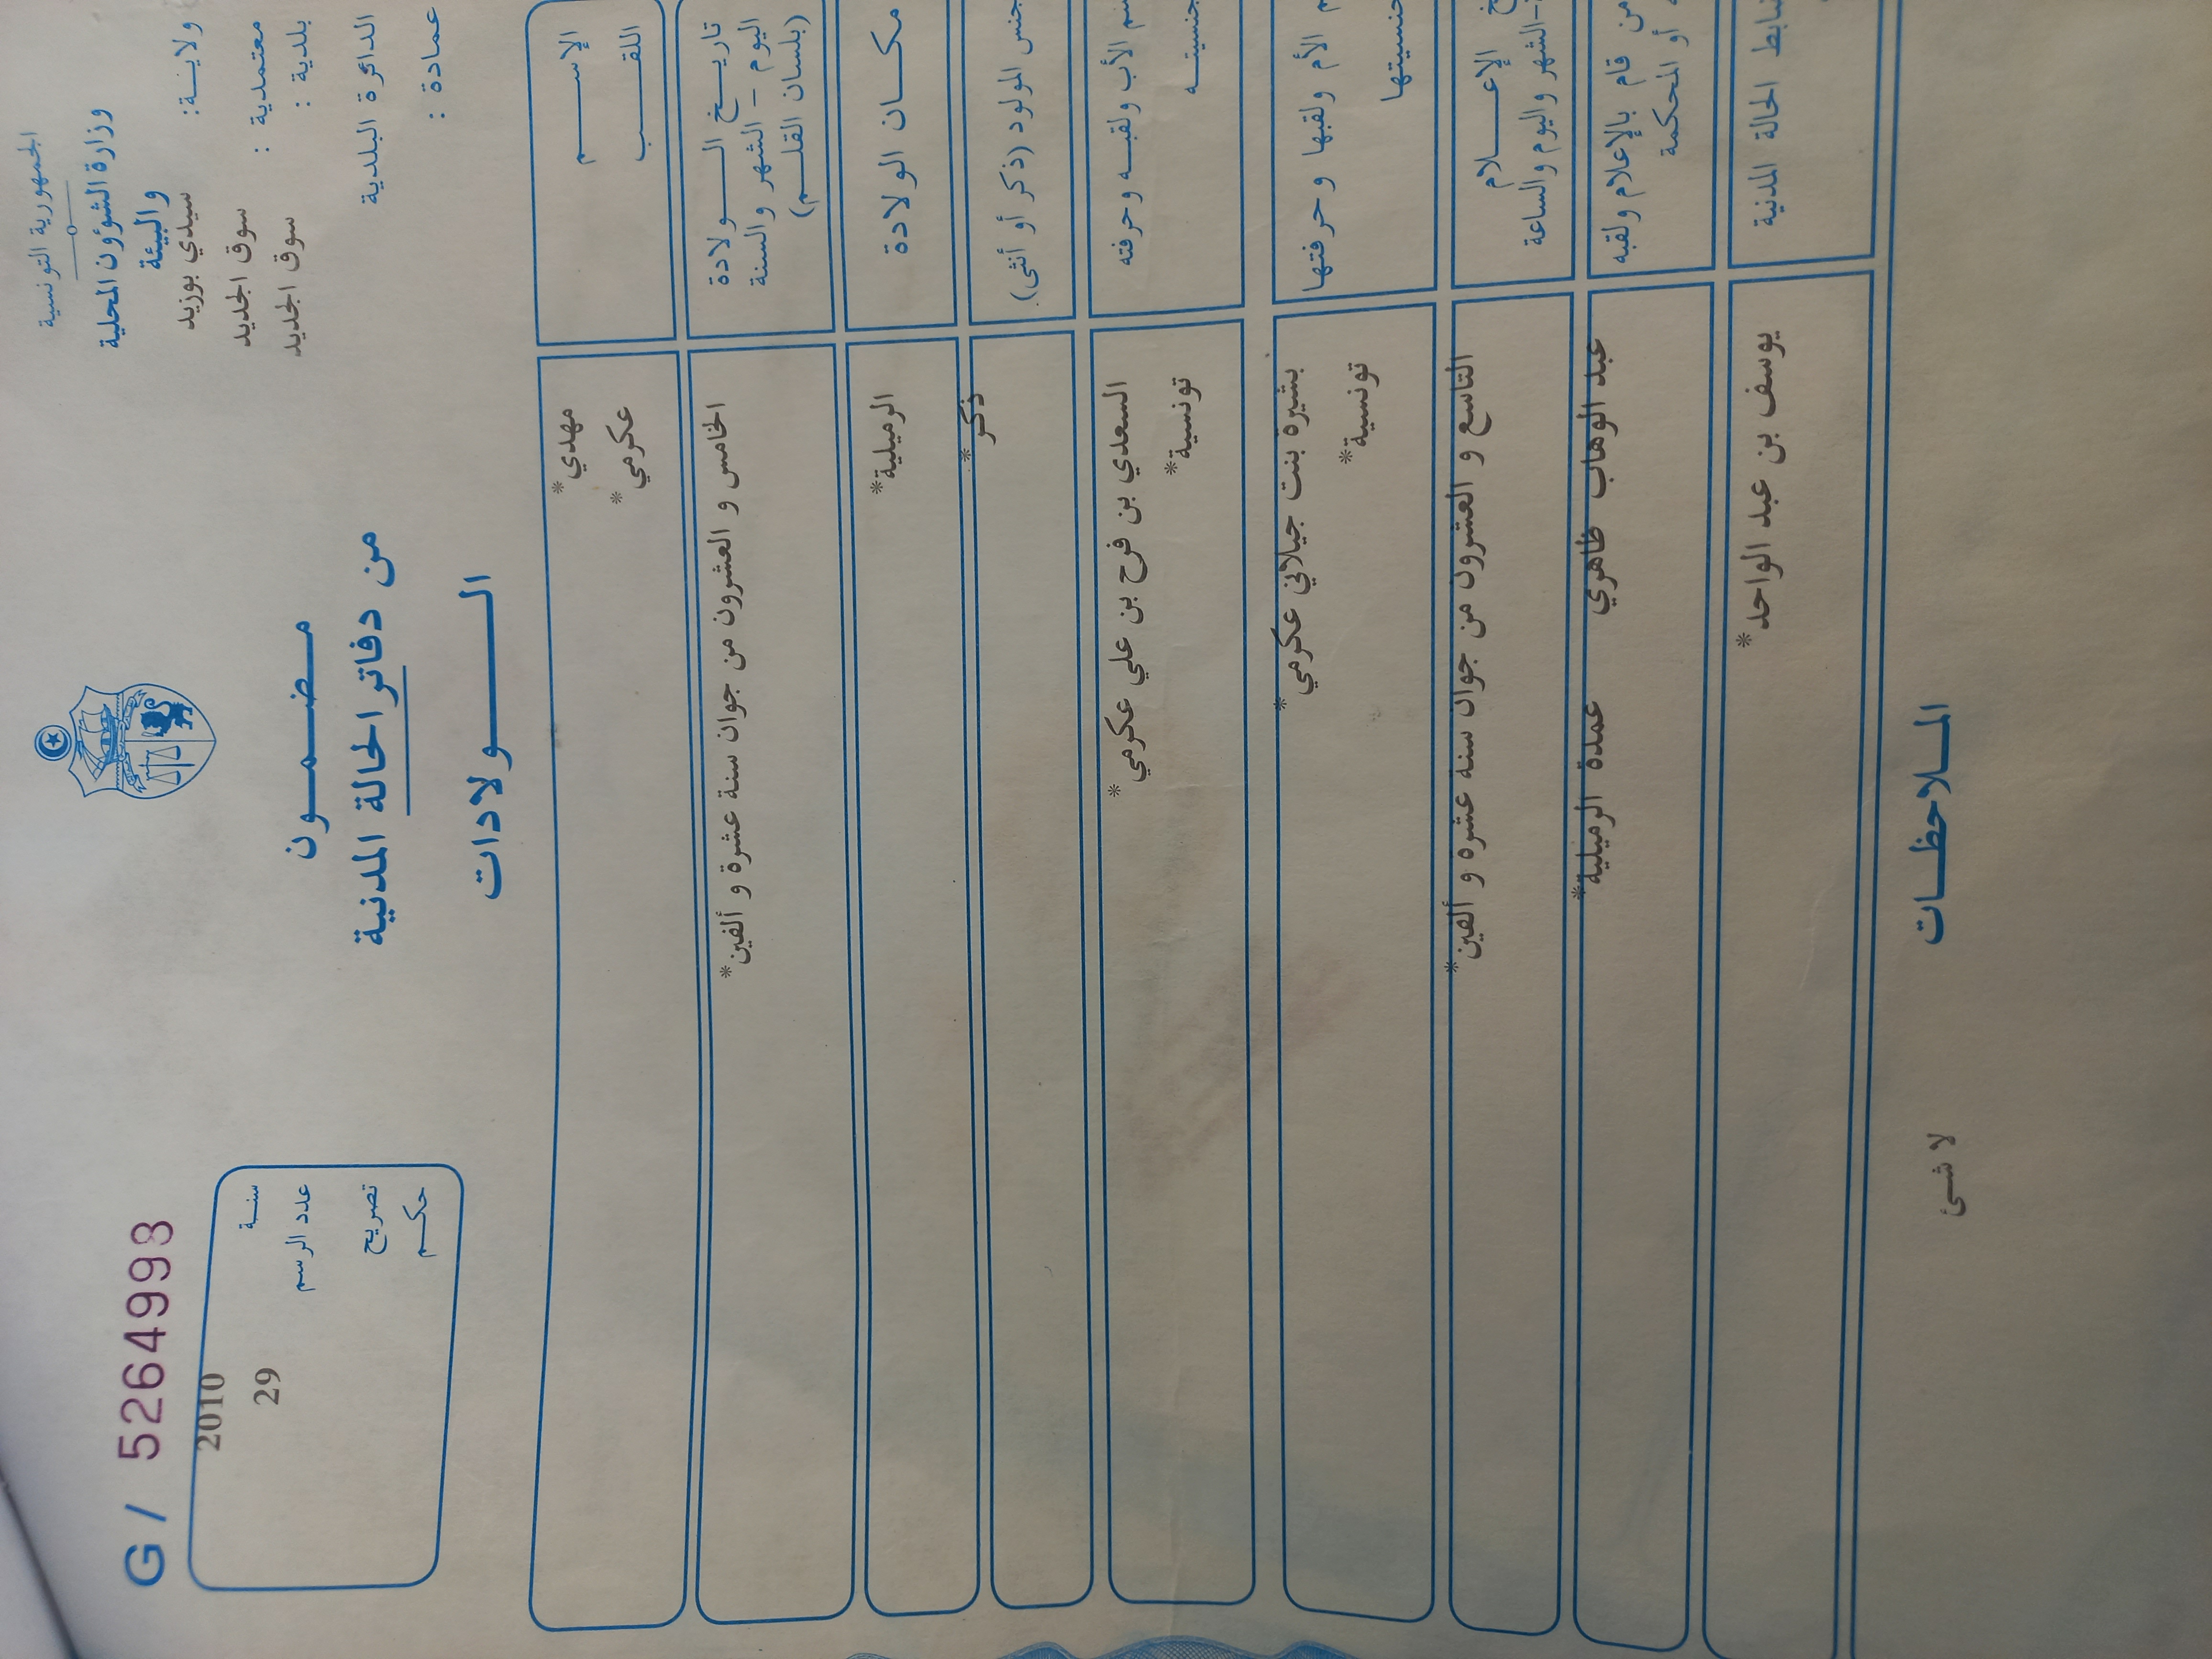 الجمهورية التونسية
وزارة الشؤون المحلية
والبيئة
ولاية: سيدي بوزيد
معتمدية : سوق الجديد
بلدية : سوق الجديد
الدائرة البلدية
عمادة :
G / 5264998
سنة 2010
عدد الرسم 29
تصريح
حكم
مضمون
من دفاتر الحالة المدنية
الولادات
الإسم مهدي*
اللقب عكرمي*
تاريخ الولادة
اليوم - الشهر والسنة
(بلسان القلم)
الخامس و العشرون من جوان سنة عشرة و ألفين*
مكان الولادة الرميلية*
جنس المولود (ذكر أو أنثى). ذكر*
الأب ولقبه وحرفته
السعدي بن فرح بن علي عكرمي*
جنسيته تونسية*
الأم ولقبها وحرفتها
بشيرة بنت جيلاني عكرمي*
جنسيتها تونسية*
الإعلام
الشهر واليوم والساعة
التاسع و العشرون من جوان سنة عشرة و ألفين*
من قام بالإعلام ولقبه
أو المحكمة
عبد الوهاب ظاهري عمدة الرميلية*
ضابط الحالة المدنية
يوسف بن عبد الواحد*
الملاحظات
لا شئ